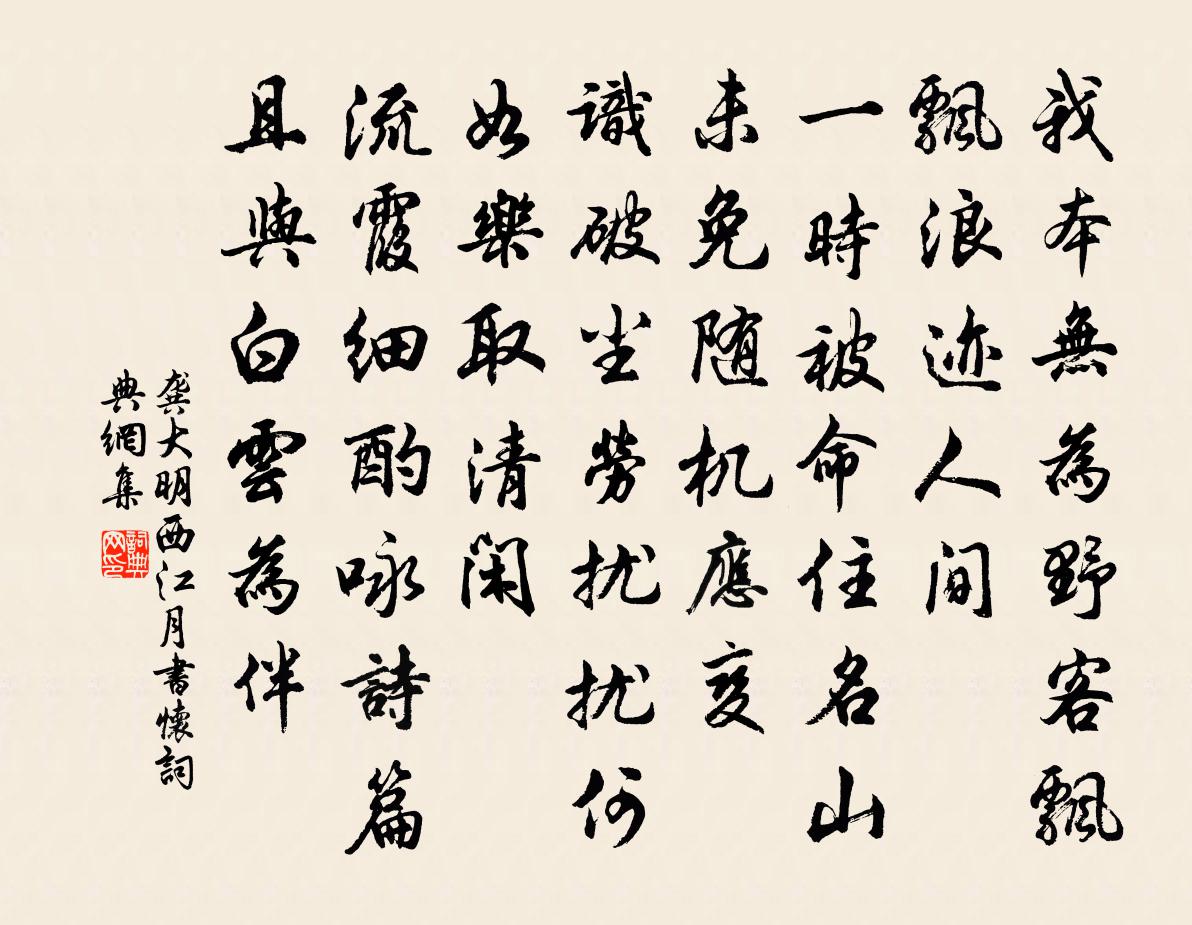 我本無為野客飄
飄浪迹人间
一時被命住名山
未免随机應变
識破尘劳扰扰何
如樂取清閑
流霞细酌咏詩篇
且與白雲為伴
龔大明西江月書懷詞
典網集
詞典
网印